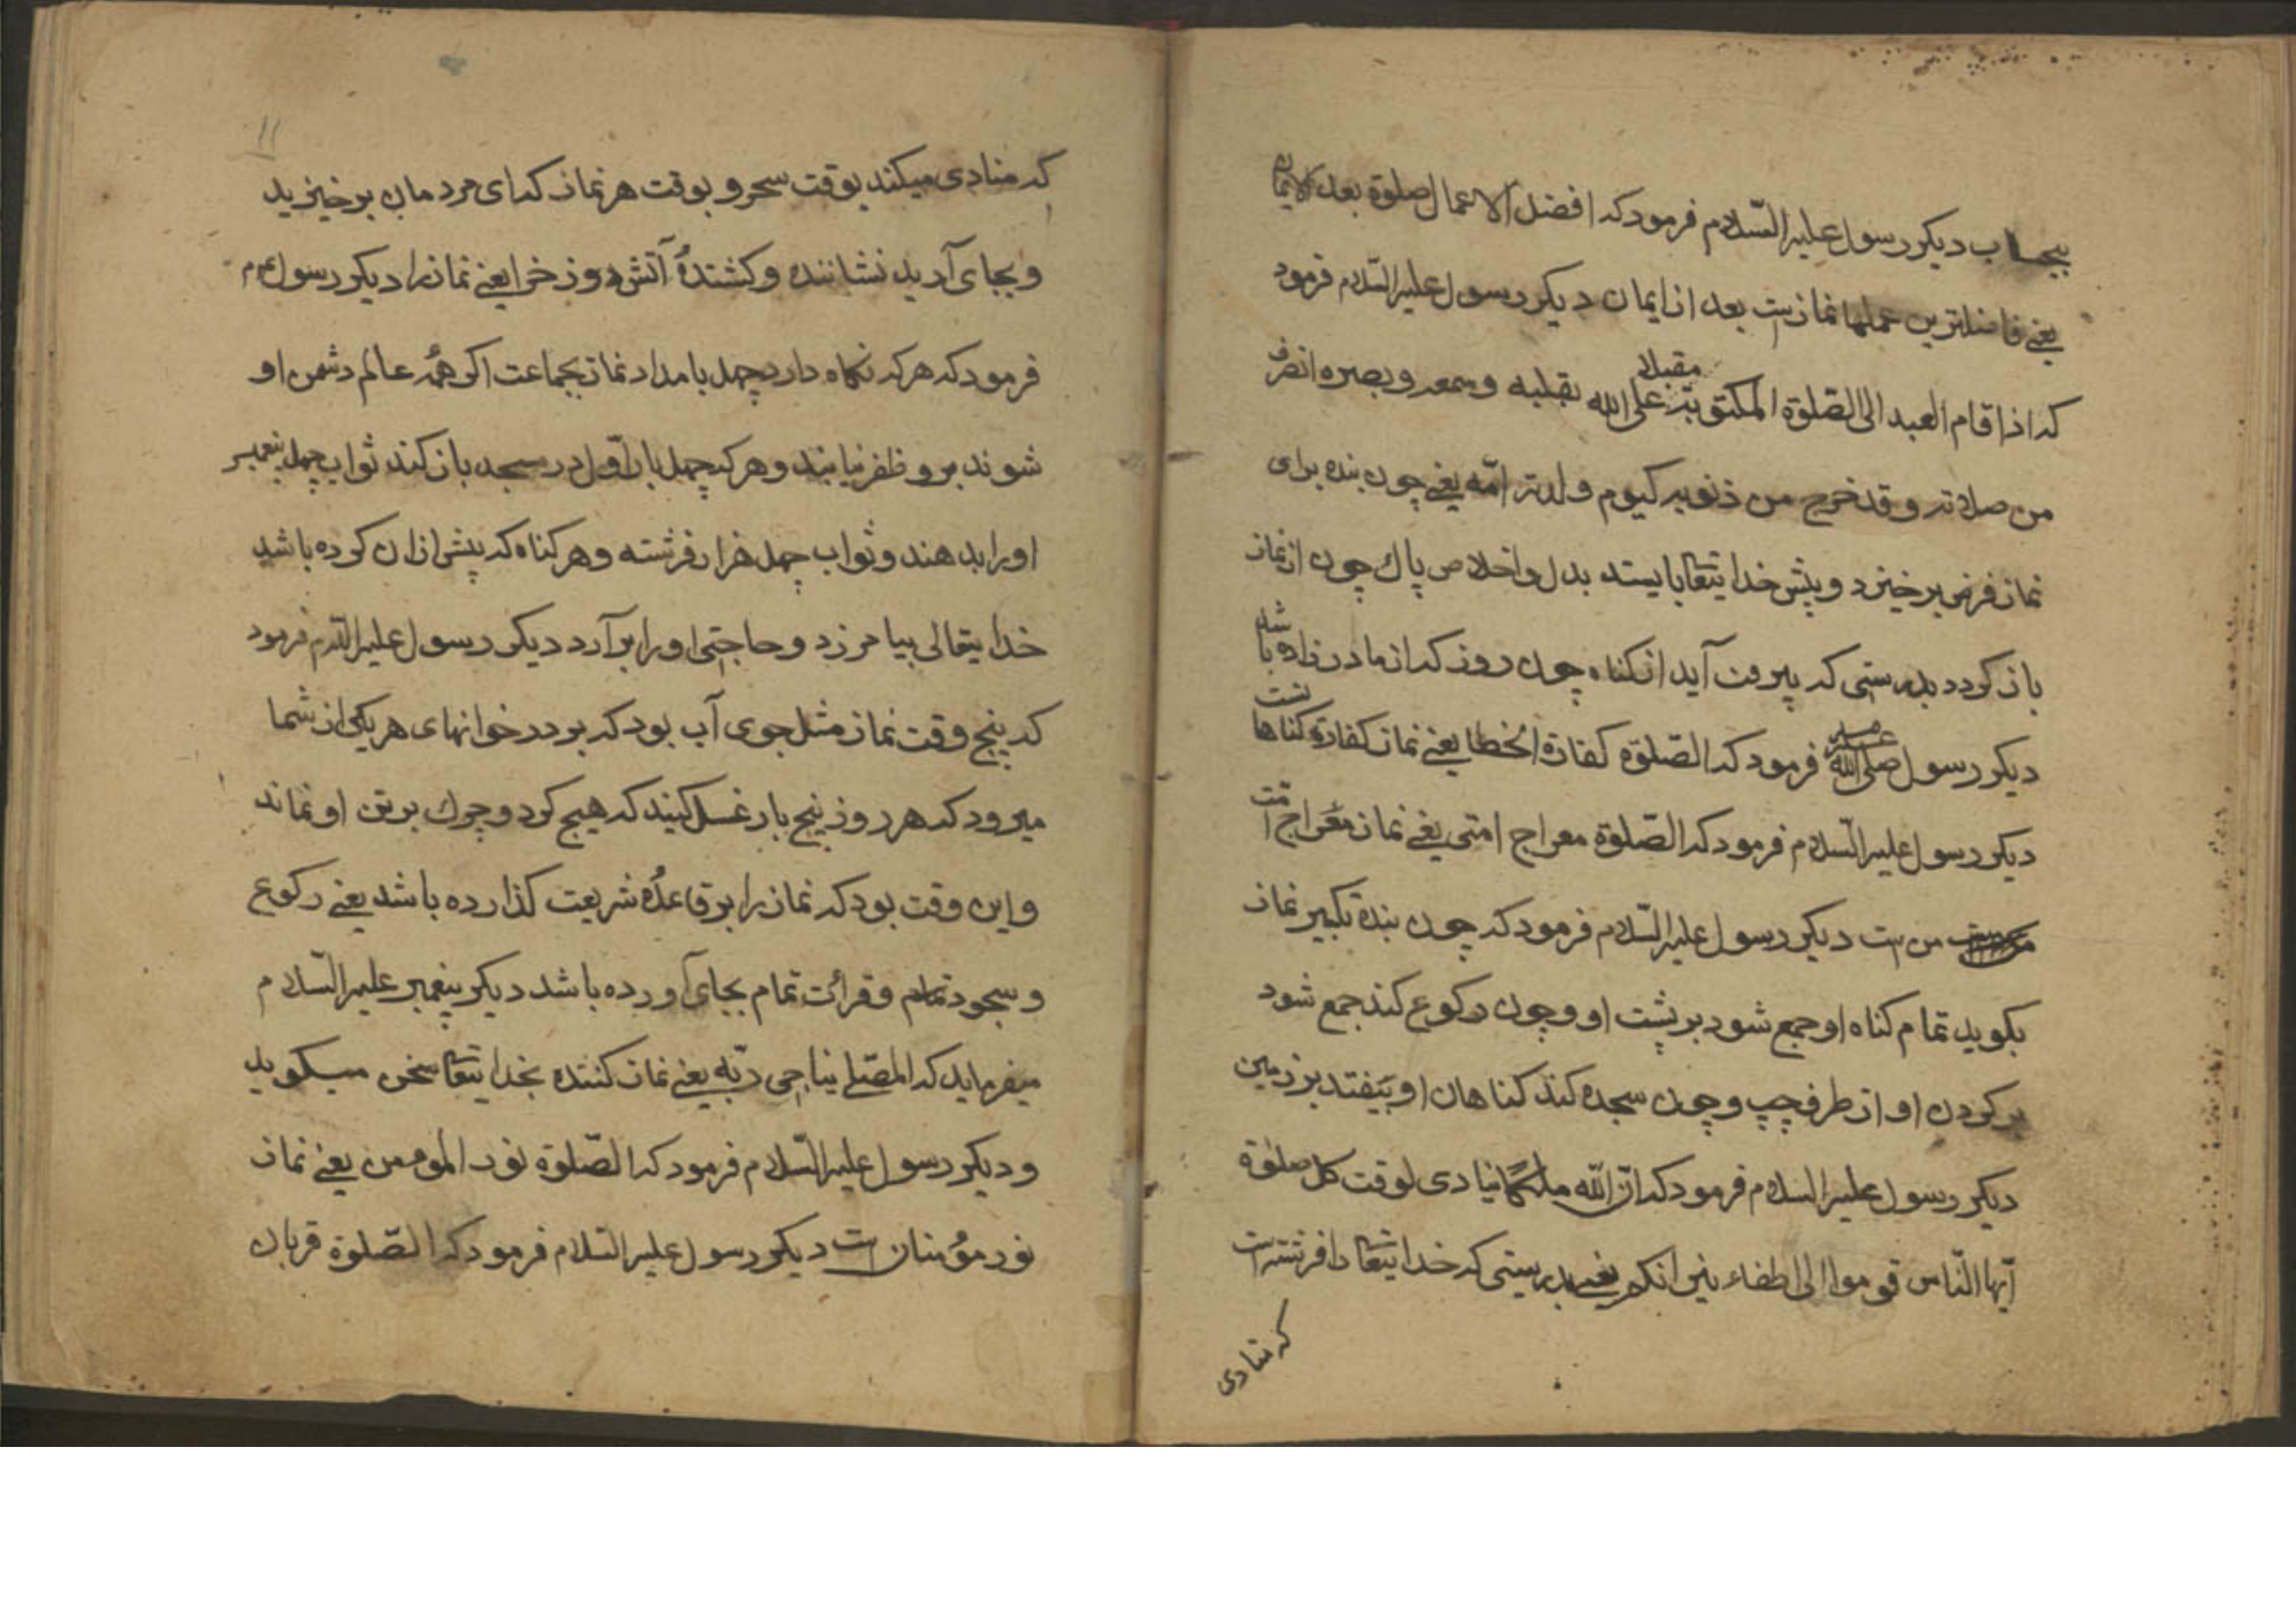 بیحساب دیکر رسول علیه السّلام فرمود که افضل الاعمال صلوة بعد الایمان
یعنے فاضلترین عملها نماز ست بعد از ایمان دیکر رسول علیه السّلام فرمود
که اذا قام العبد الی الصّلوة المکتوبة مقبلا علی الله بقلبه وسمعه وبصره انصرف
من صلاته وقد خرج من ذنوبه کیوم ولدته امّه یعنے چون بنده برای
نماز فرض برخیزد و پیش خدایتعا بایستد بدل واخلاص پاك چون از نماز
باز کردد بدرستی که بیرون آید از کناه چون روز که از مادر زاده باشد
دیکر رسول صلی الله علیه فرمود که الصّلوة کفارة الخطا یعنے نماز کفارة کناهاست
دیکر رسول علیه السّلام فرمود که الصّلوة معراج امتی یعنے نماز معراج امّت
من ست دیکر رسول علیه السّلام فرمود که چون بنده تکبیر نماز
بکوید تمام کناه او جمع شود بر پشت او وچون رکوع کند جمع شود
بر کردن او از طرف چپ وچون سجده کند کناهان او بیفتد بر زمین
دیکر رسول علیه السلام فرمود که انّ الله ملکًا ینادی لوقت کل صلوة
ایّها النّاس قوموا الی اطفاء نیرانکم یعنے بدرستی که خدایتعا را فرشته است
که منادی
١١
که منادی میکند بوقت سحر و بوقت هر نماز که ای مردمان برخیزید
و بجای آرید نشاننده وکشندهٔ آتش دوزخ را یعنے نماز را دیکر رسول عم
فرمود که هر که نکاه دارد چهل بامداد نماز بجماعت اکر همهٔ عالم دشمن او
شوند برو ظفر نیابند وهر که چهل بار اوّل در مسجد باز کند ثواب چهل پیغمبر
او را بدهند وثواب چهل هزار فرشته وهر کناه که پیش ازان کرده باشد
خدایتعالی بیامرزد وحاجتی او را برآرد دیکر رسول علیه السّلام فرمود
که پنج وقت نماز مثل جوی آب بود که بر در خوانهای هر یکی از شما
میرود که هر روز پنج بار غسل کنید که هیچ کرد وچرك بر تن او نماند
واین وقت بود که نماز را بر قاعدهٔ شریعت کذارده باشد یعنے رکوع
وسجود تمام وقرائت تمام بجای آورده باشد دیکر پیغمبر علیه السّلام
میفرماید که المصّلے یناجی ربّه یعنے نماز کننده بخدایتعا سخن میکوید
ودیکر رسول علیه السّلام فرمود که الصّلوة نور المومن یعنے نماز
نور مؤمنان است دیکر رسول علیه السّلام فرمود که الصّلوة قربان